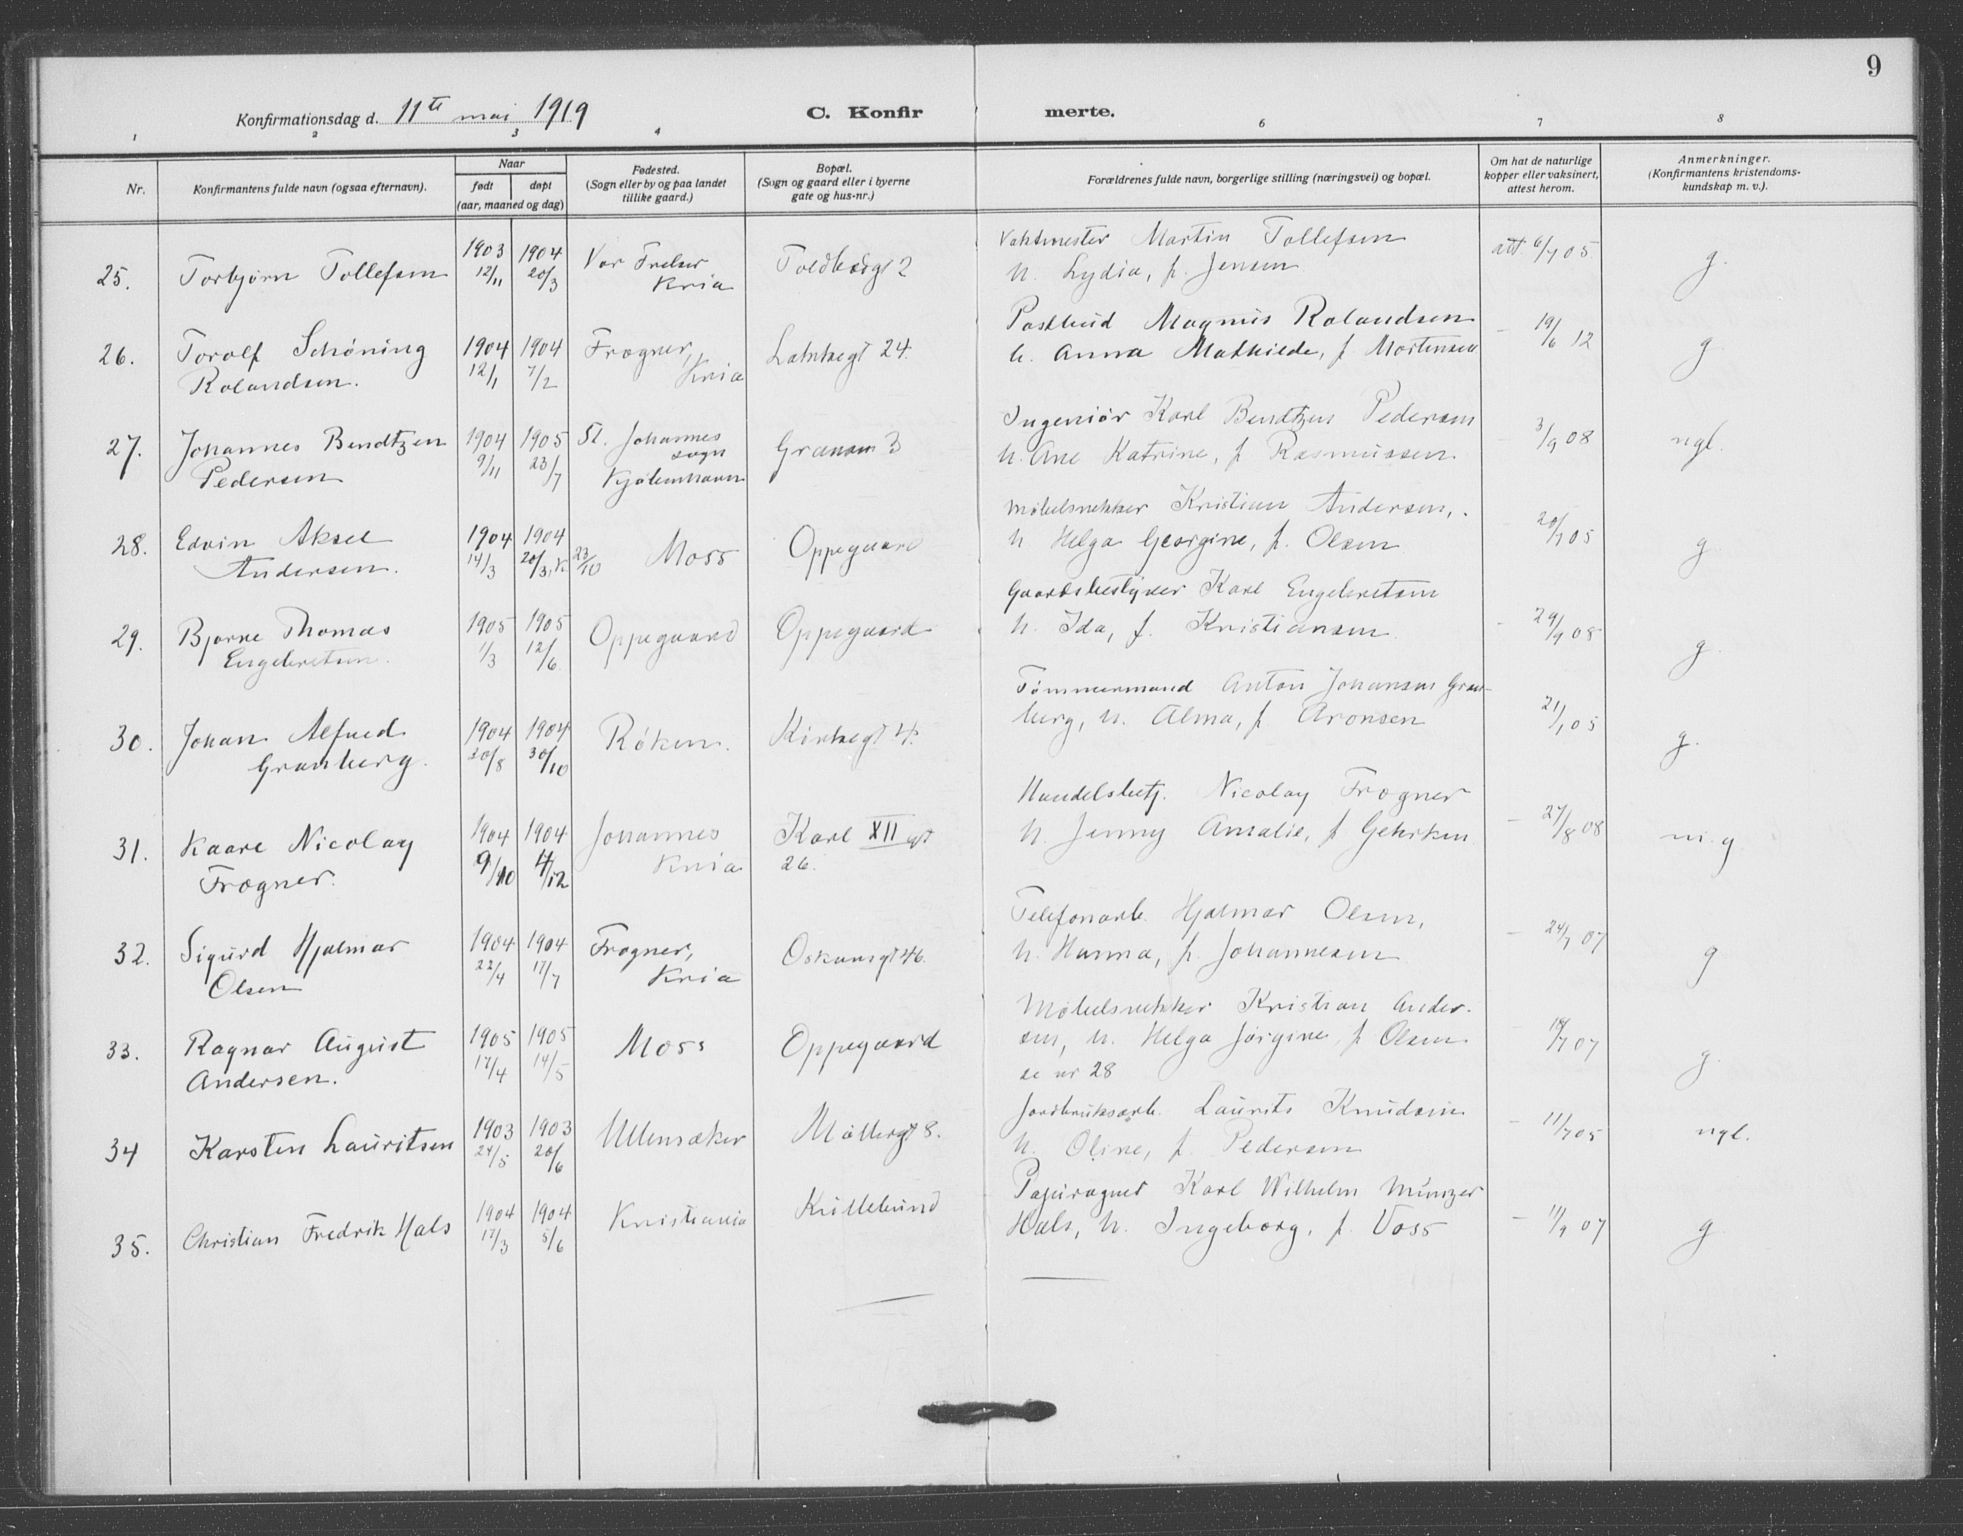 9
Konfirmationsdag d. 11te mai 1919 C. Konfirmerte.
1 2 3 4 6 7 8
Nr. Konfirmantens fulde navn (ogsaa efternavn). Naar født døpt (aar, maaned og dag) Fødested. (Sogn eller by og paa landet tillike gaard.) Bopæl. (Sogn og gaard eller i byerne gate og hus-nr.) Forældrenes fulde navn, borgerlige stilling (næringsvei) og bopæl. Om hat de naturlige kopper eller vaksinert, attest herom. Anmerkninger. (Konfirmantens kristendomskundskap m. v.).
25. Torbjørn Tollefsen 1903 12/11 1904 20/3 Vor Frelser Kria Toldbodgt 2 Vaktmester Martin Tollefsen
h. Lydia, f. Jensen att 6/7 05 g.
26. Torolf Schöning Rolandsen. 1904 12/1 1904 7/2 Frogner, Kria 24. Postbud Magnus Rolandsen
h. Anna Mathilde, f Mortensen - 19/6 12 g
27. Johannes Bendtzen Pedersen 1904 9/11 1905 23/7 St. Johannes sogn Kjøbenhavn Grænsen 3 Ingeniør Karl Bendtzen Pedersen
h. Ane Katrine, f Rasmussen. - 3/9 08 ngl.
28. Edvin Aksel Andersen. 1904 14/3 1904 20/3, k 23/10 Moss Oppegaard Møbelsnekker Kristian Andersen,
h Helga Georgine, f. Olsen 20/7 05 g
29. Bjarne Thomas Engebretsen. 1905 1/3 1905 12/6. Oppegaard Oppegaard Gaardsbestyrer Karl Engebretsen
h. Ida, f. Kristiansen. - 29/9 08 g.
30. Johan Alfred Granberg. 1904 20/8 1904 30/10 Røken. Kirkegt 4. Tømmermand Anton Johansen Gran-
berg, h. Alma, f. Aronsen 21/1 05 g.
31. Kaare Nicolay Frogner. 1904 9/10 1904 4/12 Johannes Kria Karl XII gt 26. Handelsbetj. Nicolay Frogner
h. Jenny Amalie, f Gehrken - 27/8 08 m. g
32. Sigurd Hjalmar Olsen 1904 22/4 1904 17/7 Frogner, Kria Oskarsgt 46. Telefonarb. Hjalmar Olsen,
h. Hanna, f. Johannesen - 24/7 07 g
33. Ragnar August Andersen. 1905 17/4 1905 14/5 Moss Oppegaard Møbelsnekker Kristian Ander-
sen, h. Helga Jørgine, f Olsen.
se nr 28 - 19/7 07 g.
34 Karsten Lauritsen 1903 24/5 1903 20/6 Ullensaker Møllergt 8. Jordbruksarb. Laurits Knudsen
h. Oline, f. Pedersen - 11/7 05 ngl.
35. Christian Fredrik Hals 1904 17/3 1904 5/6 Kristiania Kullebund Papiragent Karl Wilhelm Münzer
Hals, h. Ingeborg, f. Voss - 11/9 07 g